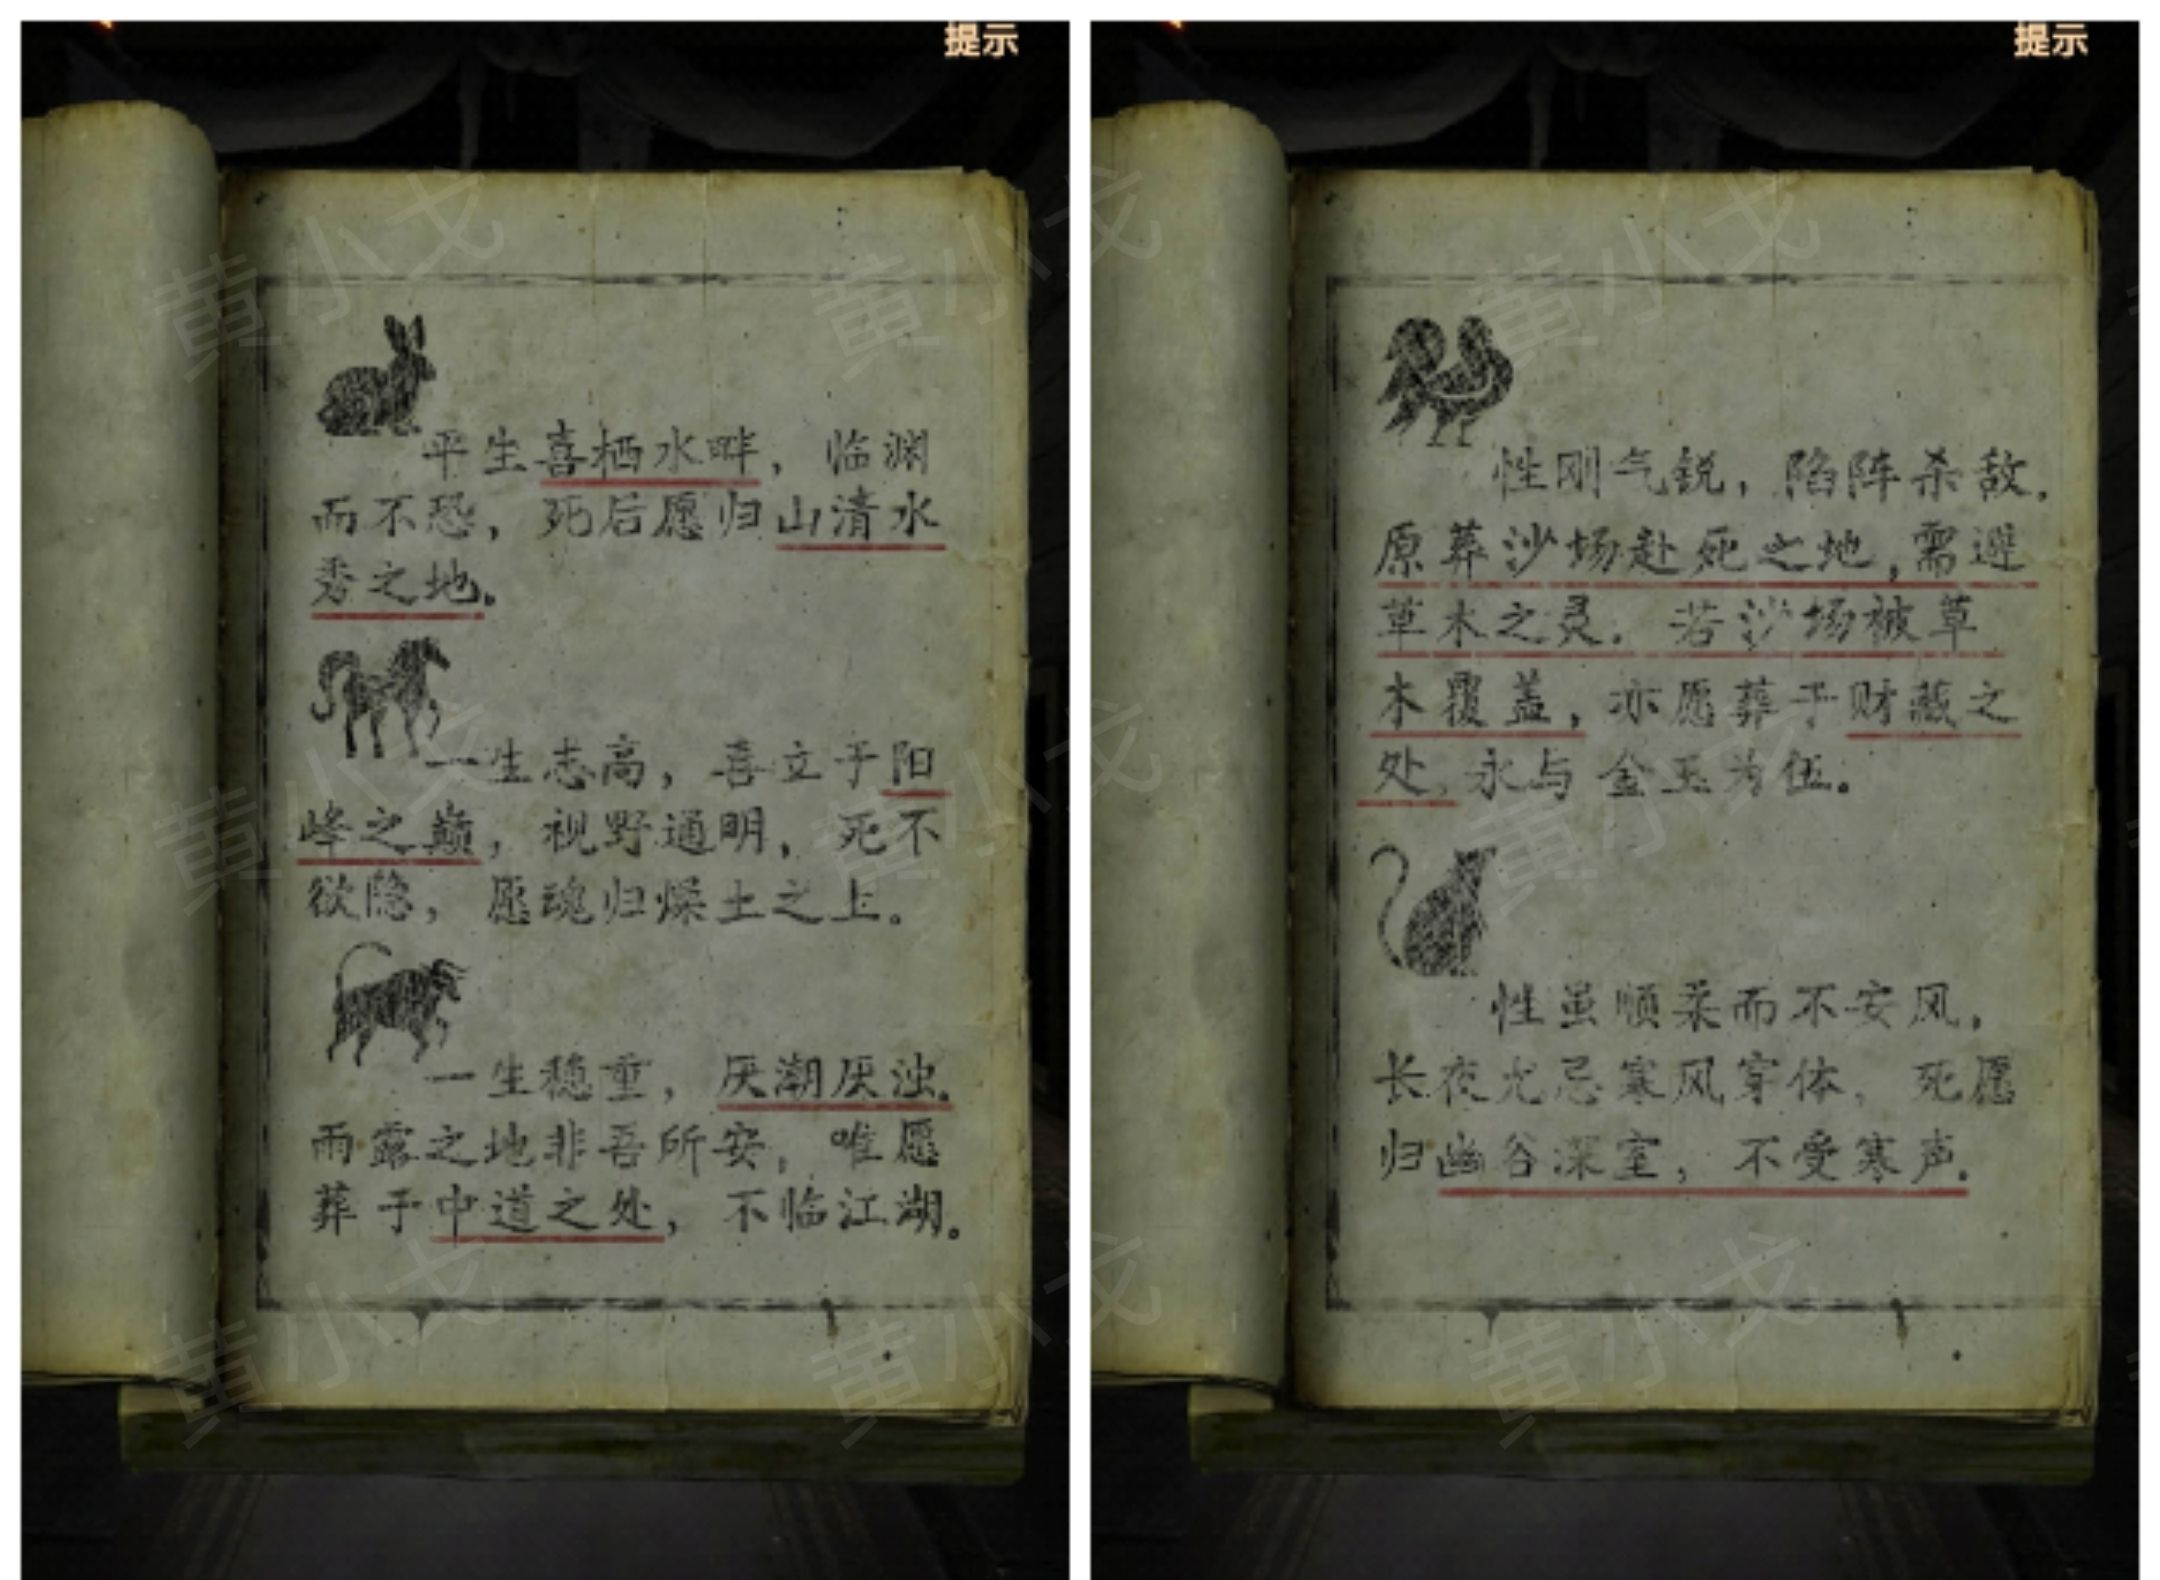 提示
平生喜栖水畔，临渊
而不恐，死后愿归山清水
秀之地。
一生志高，喜立于阳
峰之巅，视野通明，死不
欲隐，愿魂归燥土之上。
一生稳重，厌潮厌浊。
雨露之地非吾所安，唯愿
葬于中道之处，不临江湖。
提示
性刚气锐，陷阵杀敌，
原葬沙场赴死之地，需避
草木之灵。若沙场被草
木覆盖，亦愿葬于财藏之
处，永与金玉为伍。
性虽顺柔而不安风，
长夜尤忌寒风穿体，死愿
归幽谷深室，不受寒声。
黄小戈